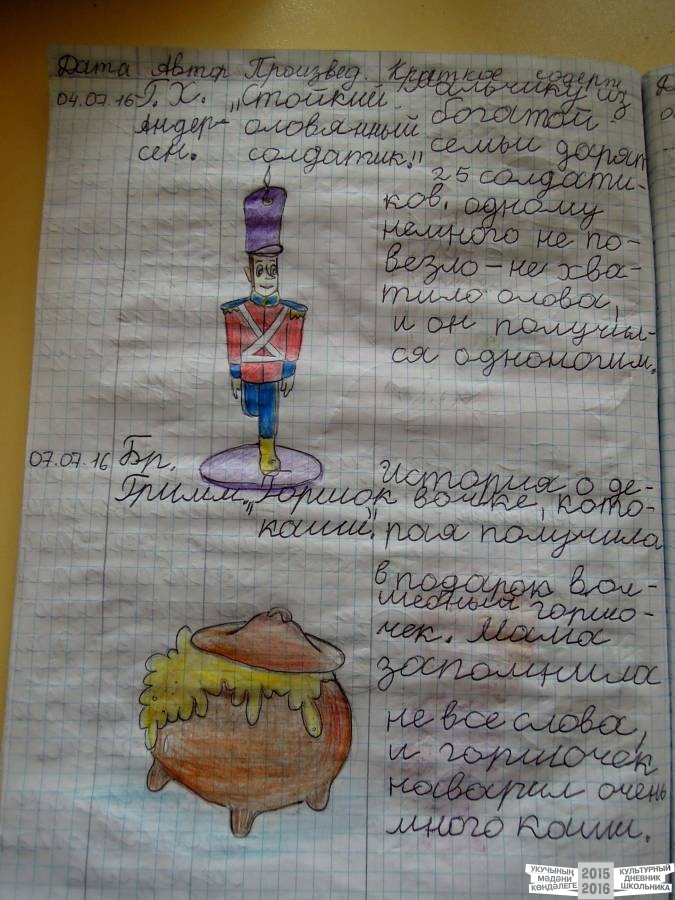 Дата Автор Произвед. Краткое содерж
04.07.16 Г. Х. Андер-
сен.
„Стойкий
оловянный
солдатик."
Мальчику из
богатой
семьи дарят
25 солдати-
ков. Одному
немного не по-
везло – не хва-
тило олова,
и он получил-
ся одноногим.
07.07.16 Бр.
Гримм.
„Горшок
каши."
История о де-
вочке, кото-
рая получила
в подарок вол-
шебный горшо-
чек. Мама
запомнила
не все слова,
и горшочек
наварил очень
много каши.
УКУЧЫНЫҢ
МӘДӘНИ
КӨНДӘЛЕГЕ
2015
2016
КУЛЬТУРНЫЙ
ДНЕВНИК
ШКОЛЬНИКА